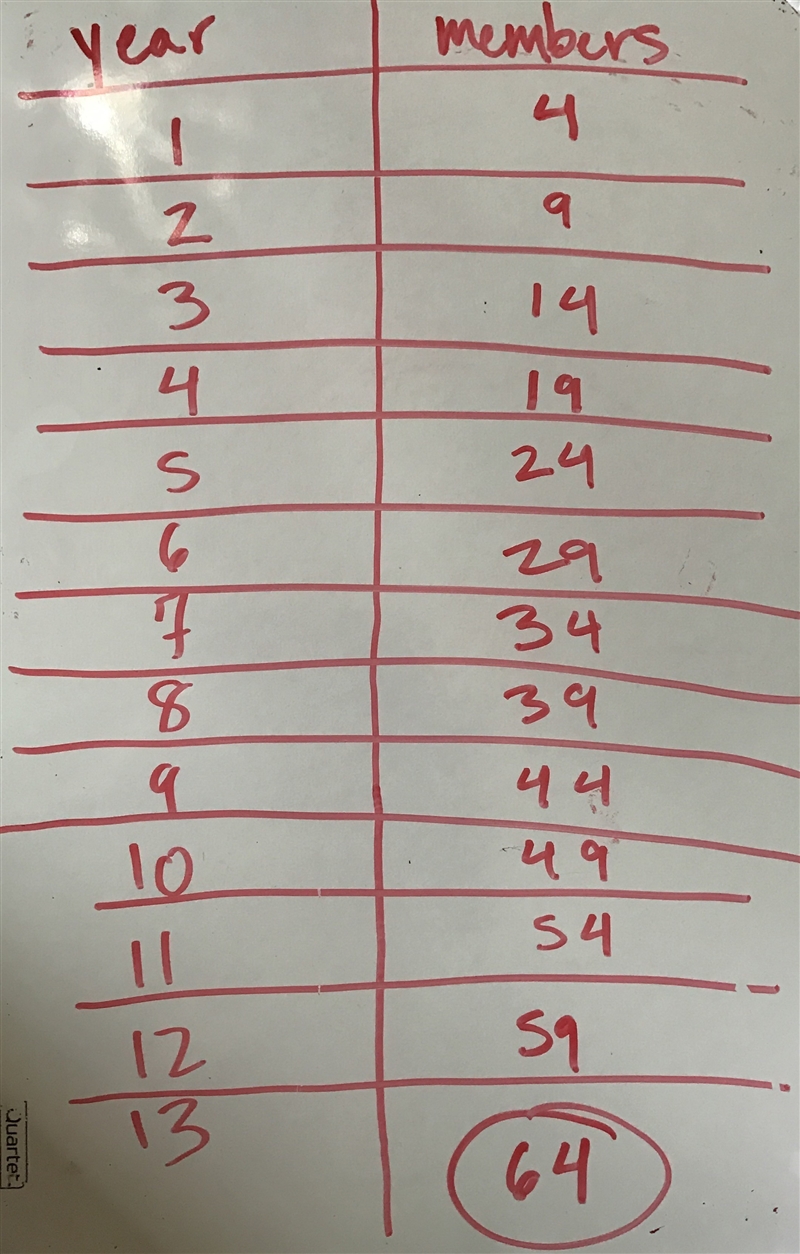 year members
1 4
2 9
3 14
4 19
5 24
6 29
7 34
8 39
9 44
10 49
11 54
12 59
13 64
Quartet